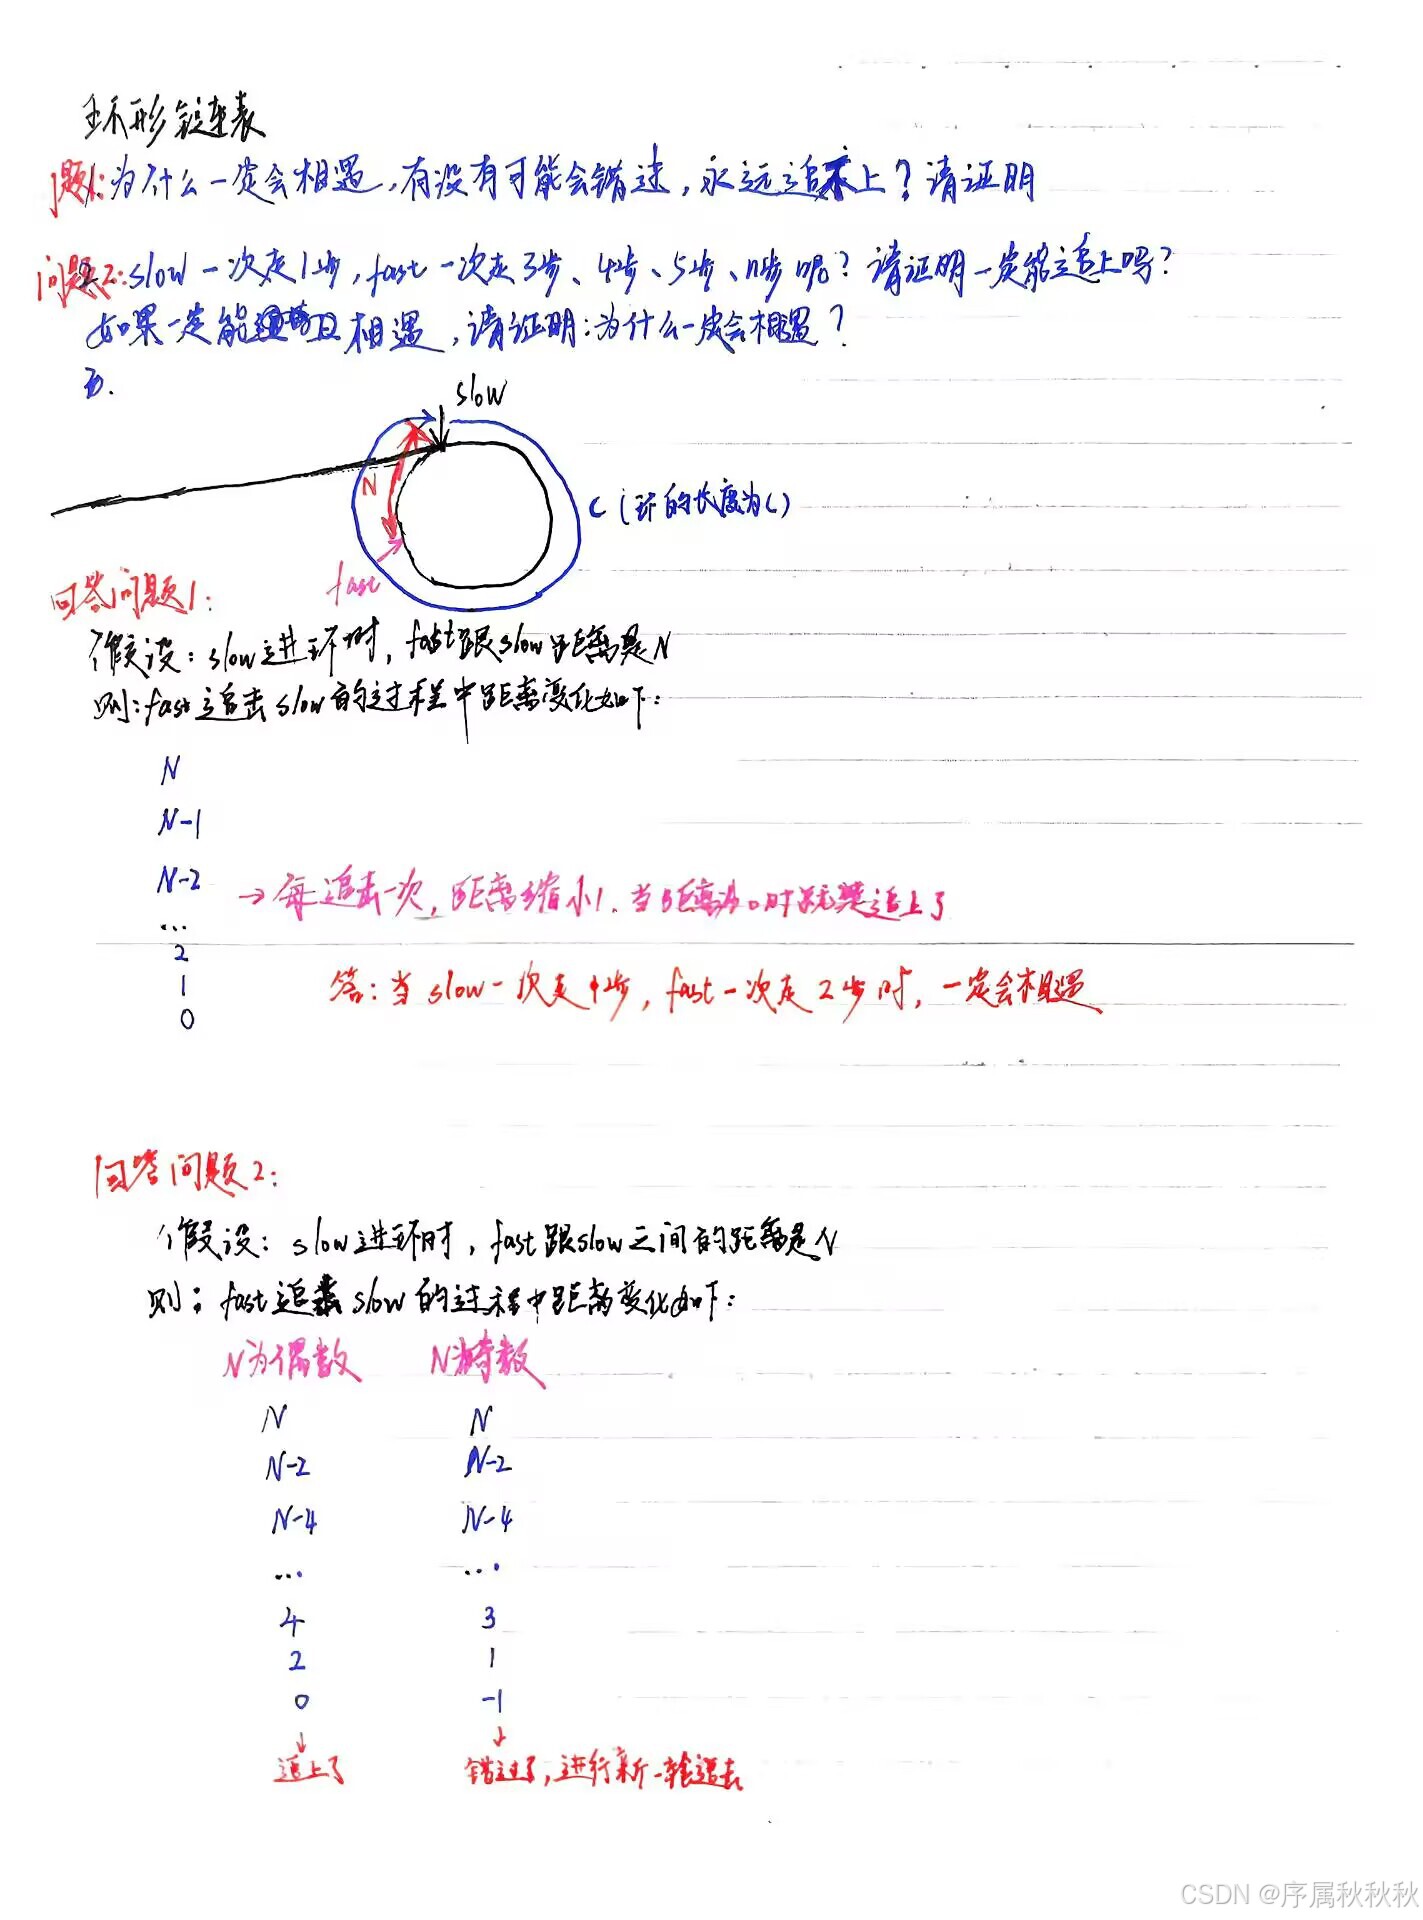 环形链表
问题1:为什么一定会相遇,有没有可能会错过,永远追不上?请证明
问题2:slow一次走1步,fast一次走3步、4步、5步、n步呢?请证明一定能追上吗?
如果一定能 且相遇,请证明:为什么一定会相遇?
slow
N
C(环的长度为C)
fast
回答问题1:
假设:slow进环时,fast跟slow距离是N
则:fast追击slow的过程中距离变化如下:
N
N-1
N-2 → 每追击一次,距离缩小1.当距离为0时就是追上了
...
2
1
0
答:当slow一次走1步,fast一次走2步时,一定会相遇
回答问题2:
假设:slow进环时,fast跟slow之间的距离是N
则:fast追击slow的过程中距离变化如下:
N为偶数 N为奇数
N N
N-2 N-2
N-4 N-4
... ...
4 3
2 1
0 -1
↓ ↓
追上了 错过了,进行新一轮追击
CSDN @序属秋秋秋